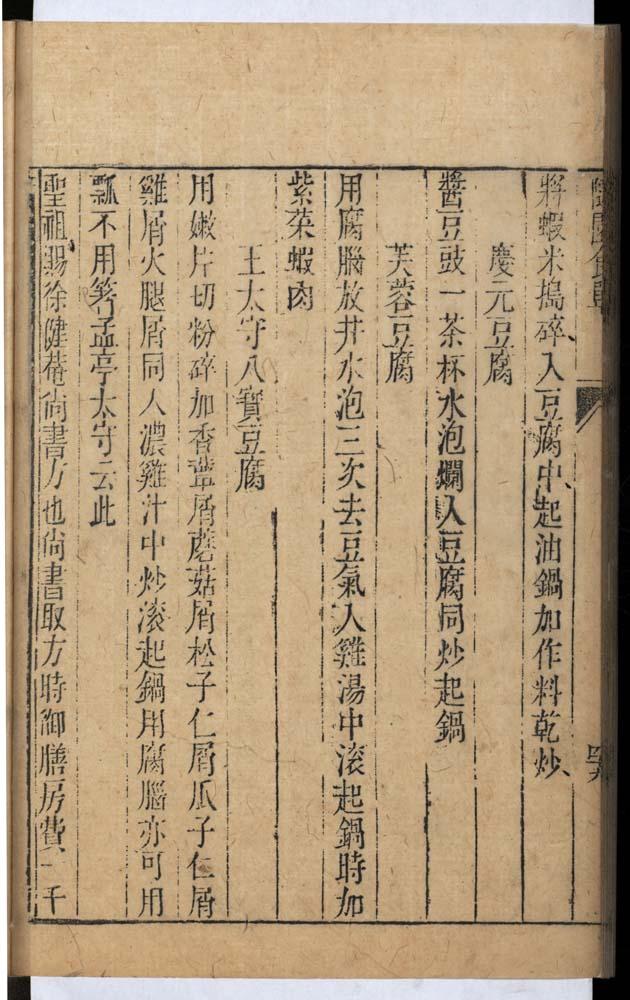 隨園食單
四六
將蝦米搗碎入豆腐中起油鍋加作料乾炒
慶元豆腐
醬豆豉一茶杯水泡爛入豆腐同炒起鍋
芙蓉豆腐
用腐腦放井水泡三次去豆氣入雞湯中滚起鍋時加
紫菜蝦肉
王太守八寶豆腐
用嫩片切粉碎加香蕈屑蘑菇屑松子仁屑瓜子仁屑
雞屑火腿屑同入濃雞汁中炒滚起鍋用腐腦亦可用
瓢不用箸孟亭太守云此
聖祖賜徐健菴尚書方也尚書取方時御膳房費一千